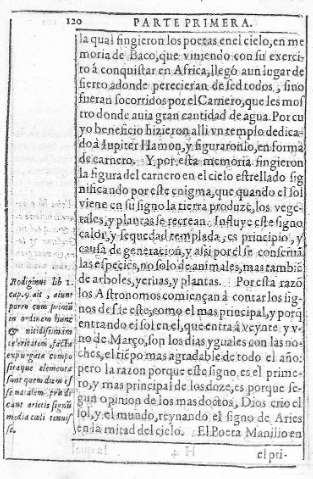 120 PARTE PRIMERA.
la qual fingieron los poetas enel cielo, en me
moria de Baco, que viniendo con su exerci
to à conquistar en Africa, llegó aun lugar de
sierto adonde perecieran de sed todos, sino
fueran socorridos por el Carnero, que les mos
tro donde auia gran cantidad de agua. Por cu
yo beneficio hizieron alli vn templo dedica
do à Iupiter Hamon, y figuraronlo, en forma
de carnero. Y por esta memoria fingieron
la figura del carnero en el cielo estrellado sig
nificando por este enigma, que quando el sol
viene en su signo la tierra produze, los vege-
tales, y plantas se recrean. Influye este signo
calor, y sequedad templada, es principio, y
causa de generacion, y assi por el se conseruã
las especies, no solo de animales, mas tambiẽ
de arboles, yeruas, y plantas. Por esta razõ
los Astronomos comiençan à contar los sig-
nos desde este, como el mas principal, y porq̃
entrando el sol en el, que entra à veynte y v-
no de Março, son los dias yguales con las no-
ches, el tiẽpo mas agradable de todo el año:
pero la razon porque este signo, es el prime-
ro, y mas principal de los doze, es porque se-
gun opinion de los mas doctos, Dios crio el
sol, y el mundo, reynando el signo de Aries
en la mitad del cielo. El Poeta Manilio en
el pri-
Rodiginus lib 1.
cap. 9. ait, aiunt
porro cum primũ
in ordinem hunc
& nitidissimam
celeritatem, facta
compo
sitaque elementa
sunt quem diem
se natalem
cant arietis signũ
medio cœli tenuis
se.
H 4